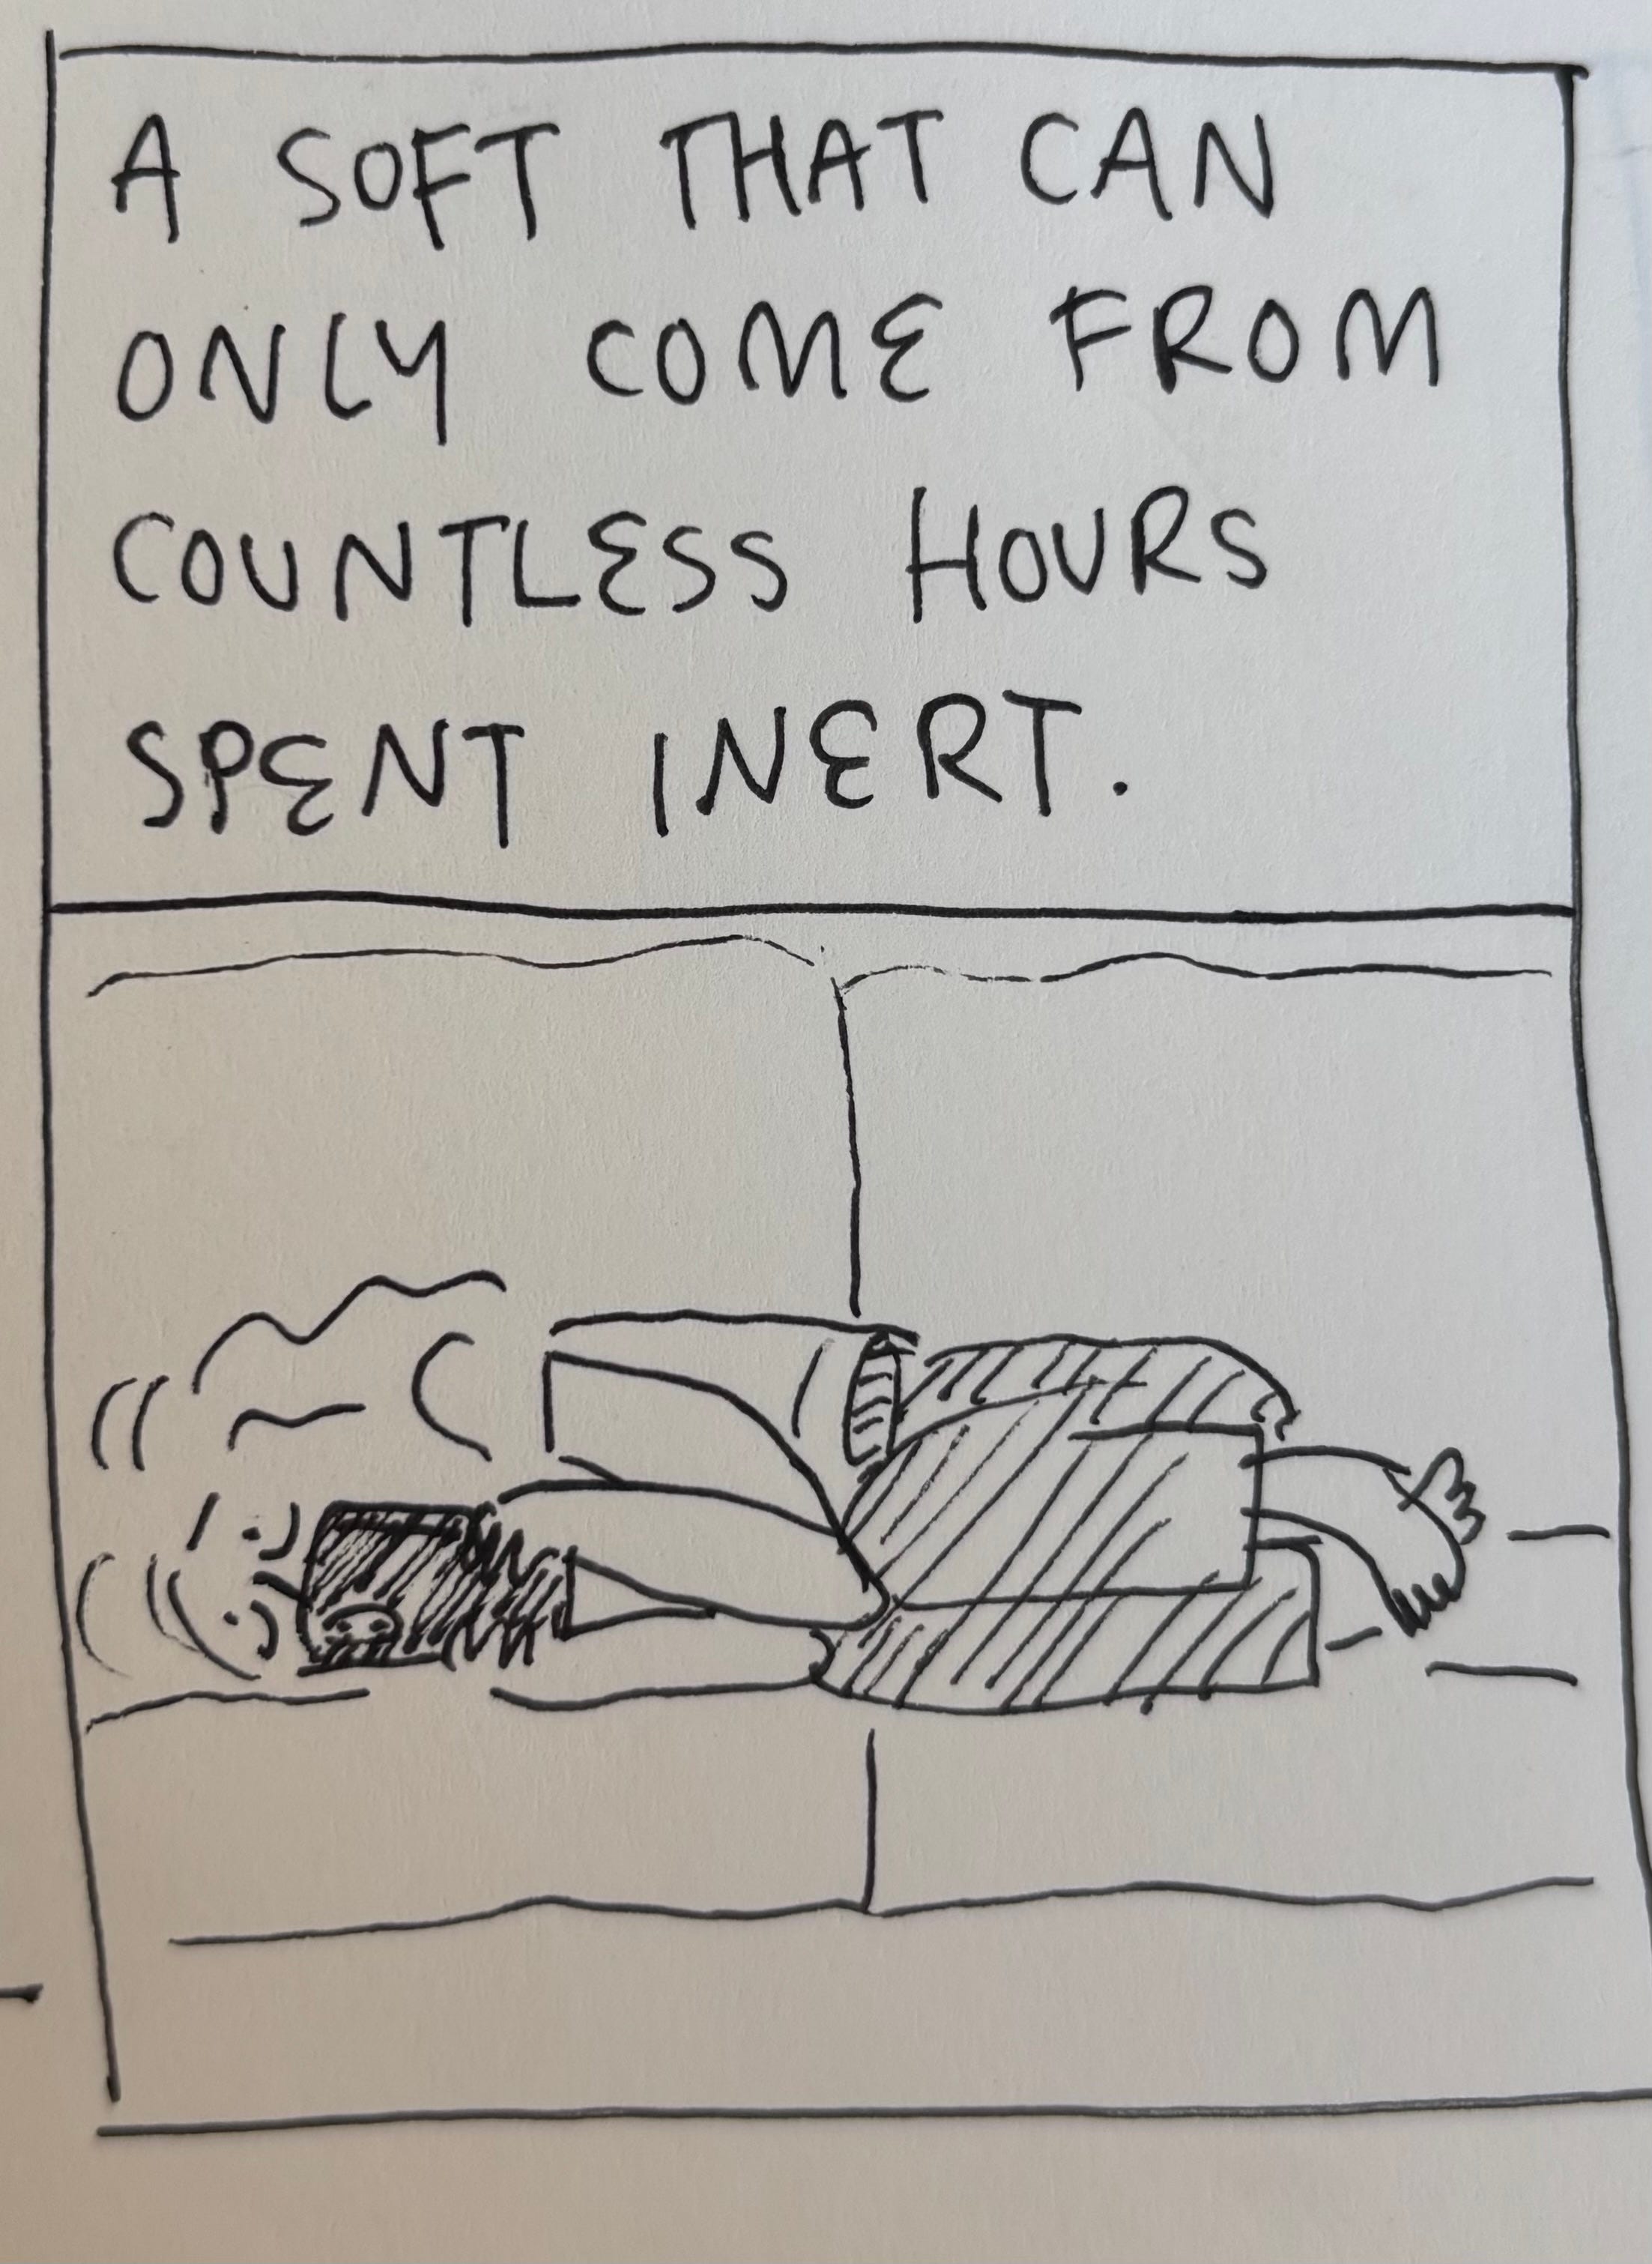 A SOFT THAT CAN
ONLY COME FROM
COUNTLESS HOURS
SPENT INERT.